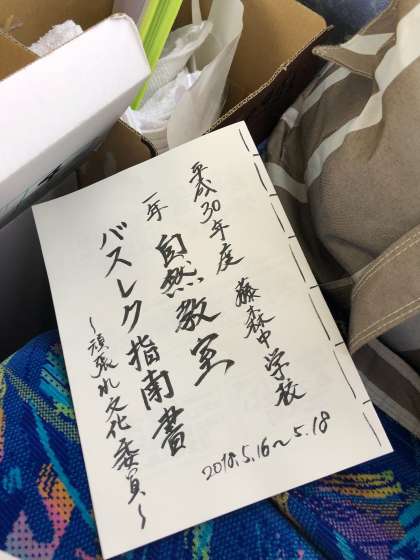 平成30年度 藤森中学校
一年 自然教室
バスレク指南書
～頑張れ文化委員～
2018.5.16～5.18